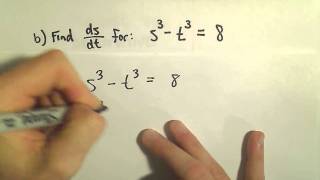 b) Find ds/dt for: s³ - t³ = 8
s³ - t³ = 8